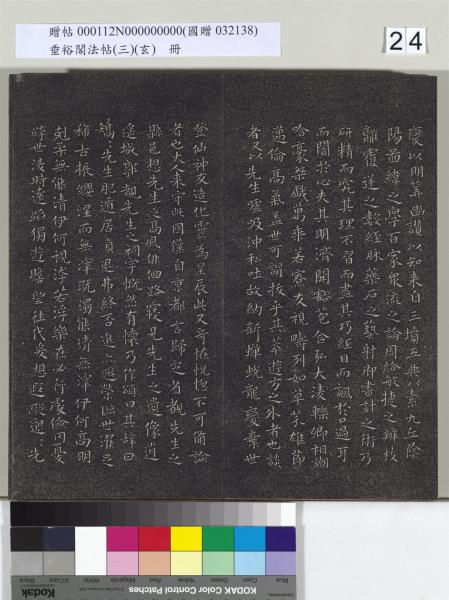 贈帖 000112N000000000(國贈 032138)
垂裕閣法帖(三)(玄) 冊
24
變以明筭幽讚以知来自三墳五典八素九丘陰
陽圖緯之學百家衆流之論周給敏捷之辨枝
離覆逆之數經脉藥石之藝射御書計之術乃
研精而究其理不習而盡其巧經目而諷於口過耳
而闇於心夫其明濟開豁苞含弘大淩轢卿相謿
哈豪桀戲萬乘若寮友視疇列如草芥雄節
邁倫高氣蓋世可謂拔乎其萃遊方之外者也談
者又以先生噓吸沖和吐故納新蟬蛻龍變棄世
登仙神交造化靈為星辰此又奇怪恍惚不可備論
者也大人来守此國僕自京都言歸定省覩先生之
縣邑想先生之高風俳佪路寢見先生之遺像逍
遙城郭覩先生之祠宇慨然有懷乃作頌曰其辭曰
矯〻先生肥遁居貞退弗終否進亦避榮臨世濯足
希古振纓涅而無滓既濁能清無滓伊何高明
剋柔無能清伊何視洿若浮樂在必行處儉罔憂
跨世淩時遠蹈獨遊瞻望往代爰想遐蹤邈〻先
Blue Cyan Green Yellow Red Magenta White 3/Color Black
KODAK Color Control Patches